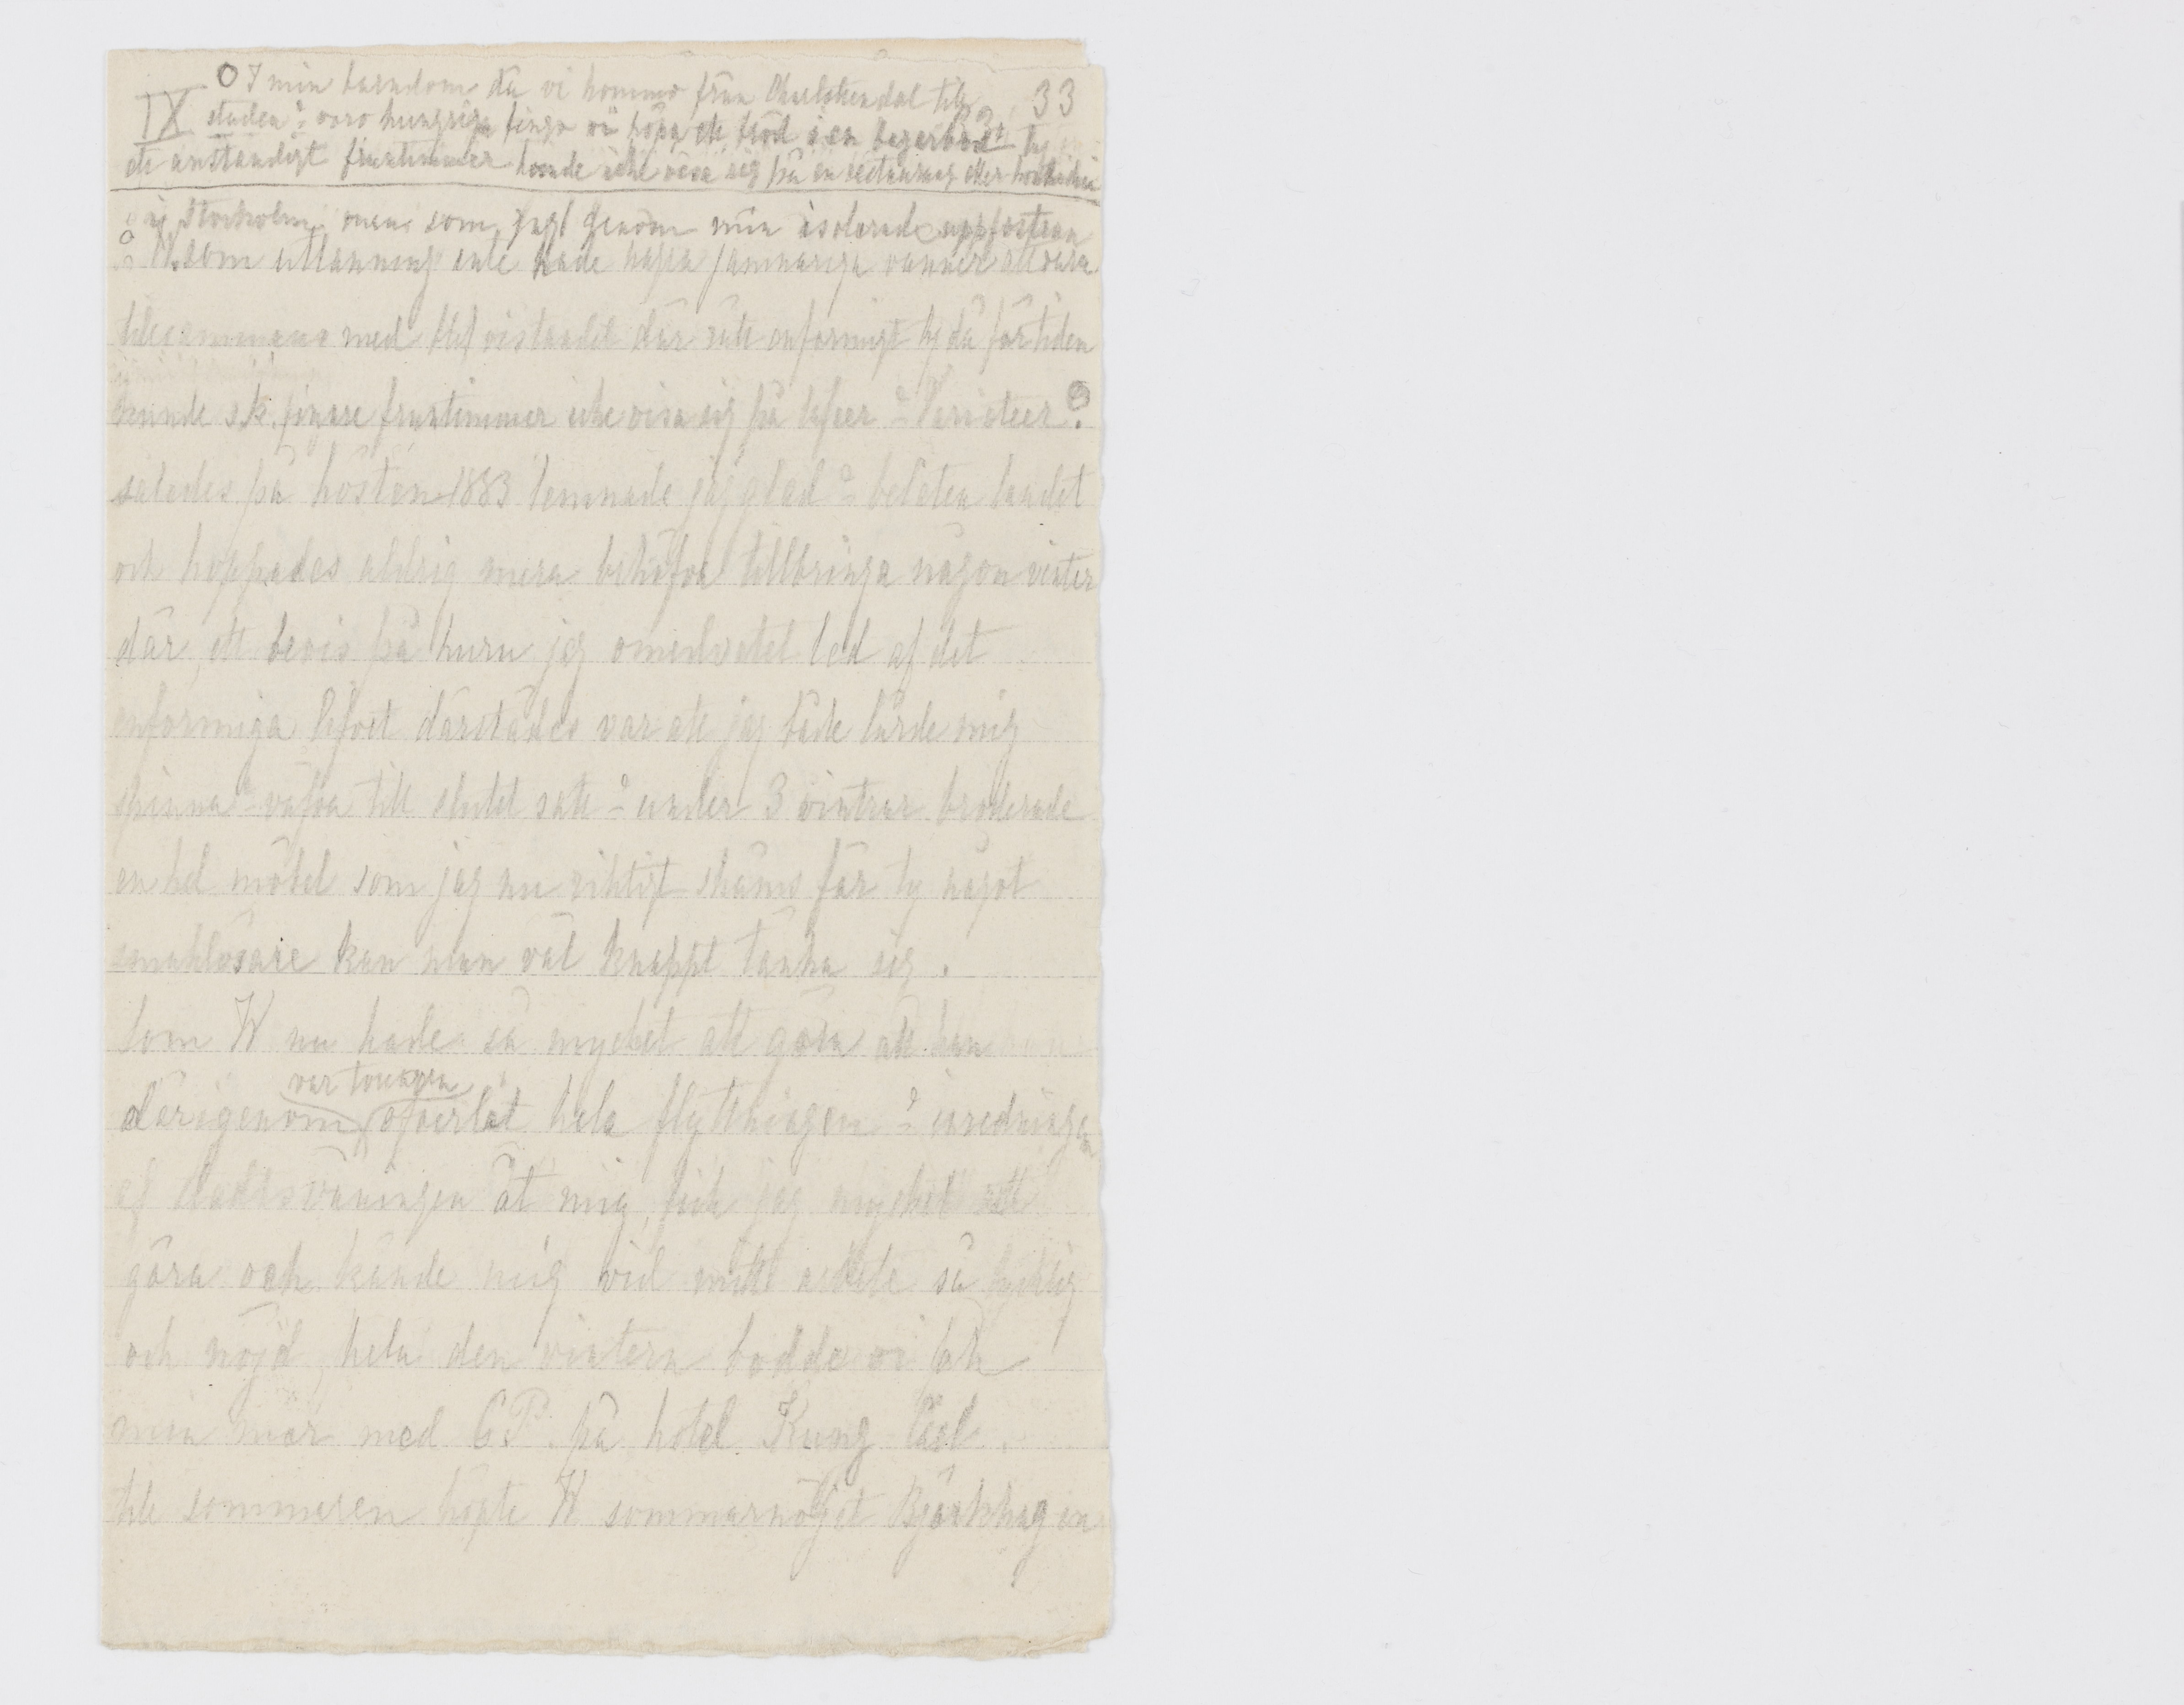 O I min barndom då vi kommo från Charlottendal till 33
IX staden & voro hungriga fingo vi köpa ett bröd i en bagarbod ty
ett anständigt fruntimmer kunde icke visa sig på en restaurang eller konditori
i Stockholm, men som jag genom min isolerade uppfostran
& W. som utlänning inte hade några jämnåriga vänner att vara
tillsammans med blef vistandet där rätt enformigt ty då för tiden
kunde s.k. finare fruntimmer icke visa sig på kafeer & Varieteer. O
således på hösten 1883 lemnade jag glad & belåten landet
och hoppades aldrig mera behöfva tillbringa någon vinter
där, ett bevis på huru jag omedvetet led af det
enformiga lifvet därstädes var att jag både lärde mig
spinna & väfva till slutet satt & under 3 vintrar broderade
en hel möbel som jag nu riktigt skäms för ty något
smaklösare kan man väl knappt tänka sig.
Som W nu hade så mycket att göra att han
var tvungen
därigenom öfverlåt hela flyttningen & inredningen
af stadtsvåningen åt mig, fick jag mycket att
göra och kände mig vid mitt arbete så lycklig
och nöjd, hela den vintern bodde vi och
min mor med C.P. på hotel Kung Carl.
till sommaren köpte W sommarnöjet Björkhagen